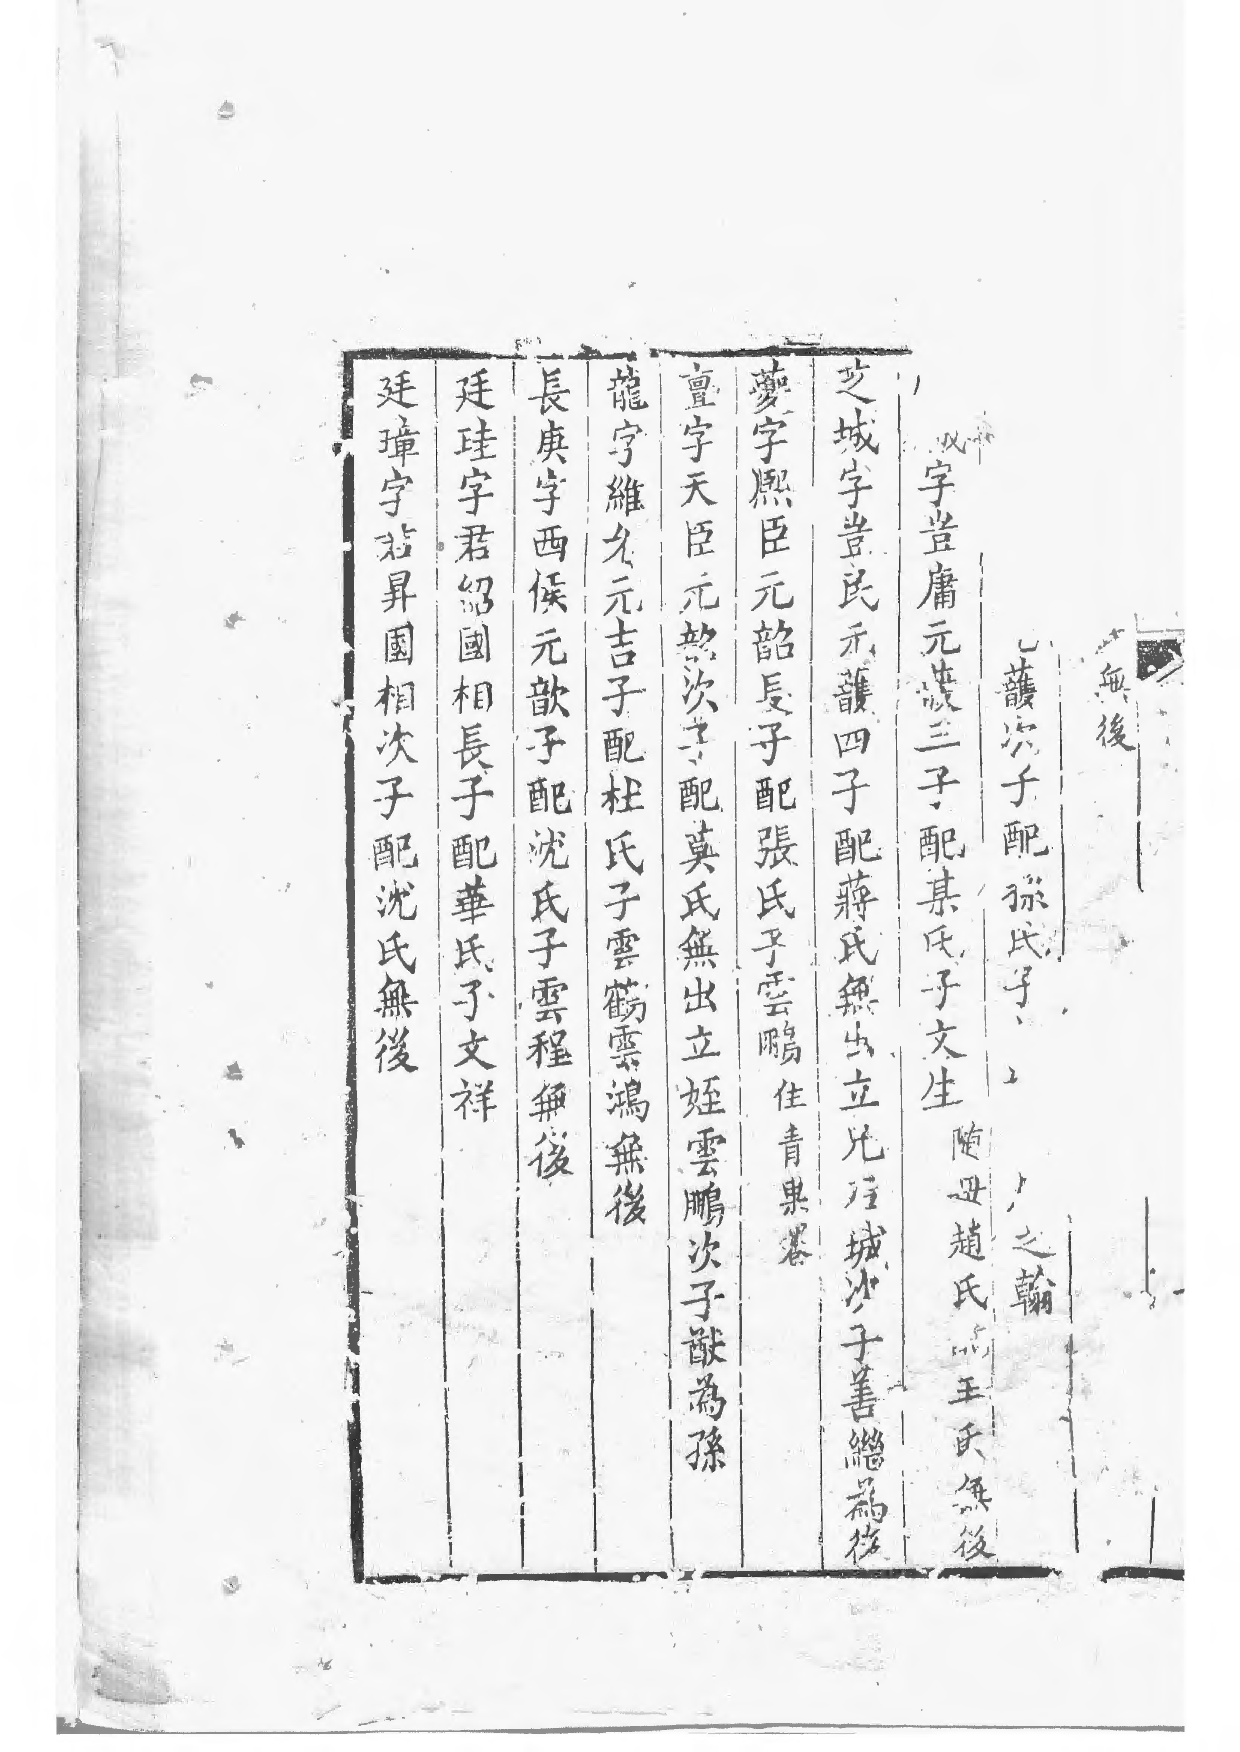 無後
蘐次子配孫氏子之翰
城字豈庸元蘐三子配某氏子文生隨母趙氏王氏無後
芝城字豈民元蘐四子配蔣氏無出立兄城次子善繼為後
夔字熙臣元韶長子配張氏子雲鵬住青果巷
亶字天臣元韶次子配莫氏無出立姪雲鵬次子猷為孫
龍字維允元吉子配杜氏子雲鶴雲鴻無後
長庚字西侯元歆子配沈氏子雲程無後
廷珪字君紹國相長子配華氏子文祥
廷璋字君昇國相次子配沈氏無後